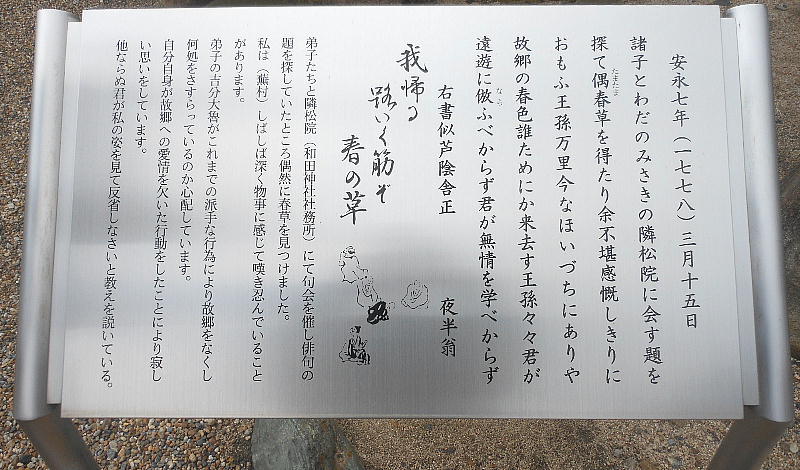 安永七年（一七七八）三月十五日
諸子とわだのみさきの隣松院に会す題を
探て偶春草を得たり余不堪感慨しきりに
たまたま
おもふ王孫万里今なほいづちにありや
故郷の春色誰ためにか来去す王孫々々君が
遠遊に倣ふべからず君が無情を学べからず
なら
右書似芦陰舎正　夜半翁
我帰る
路いく筋ぞ
春の草
弟子たちと隣松院（和田神社社務所）にて句会を催し俳句の
題を探していたところ偶然に春草を見つけました。
私は（蕪村）しばしば深く物事に感じて嘆き忍んでいること
があります。
弟子の吉分大魯がこれまでの派手な行為により故郷をなくし
何処をさすらっているのか心配しています。
自分自身が故郷への愛情を欠いた行動をしたことにより寂し
い思いをしています。
他ならぬ君が私の姿を見て反省しなさいと教えを説いている。